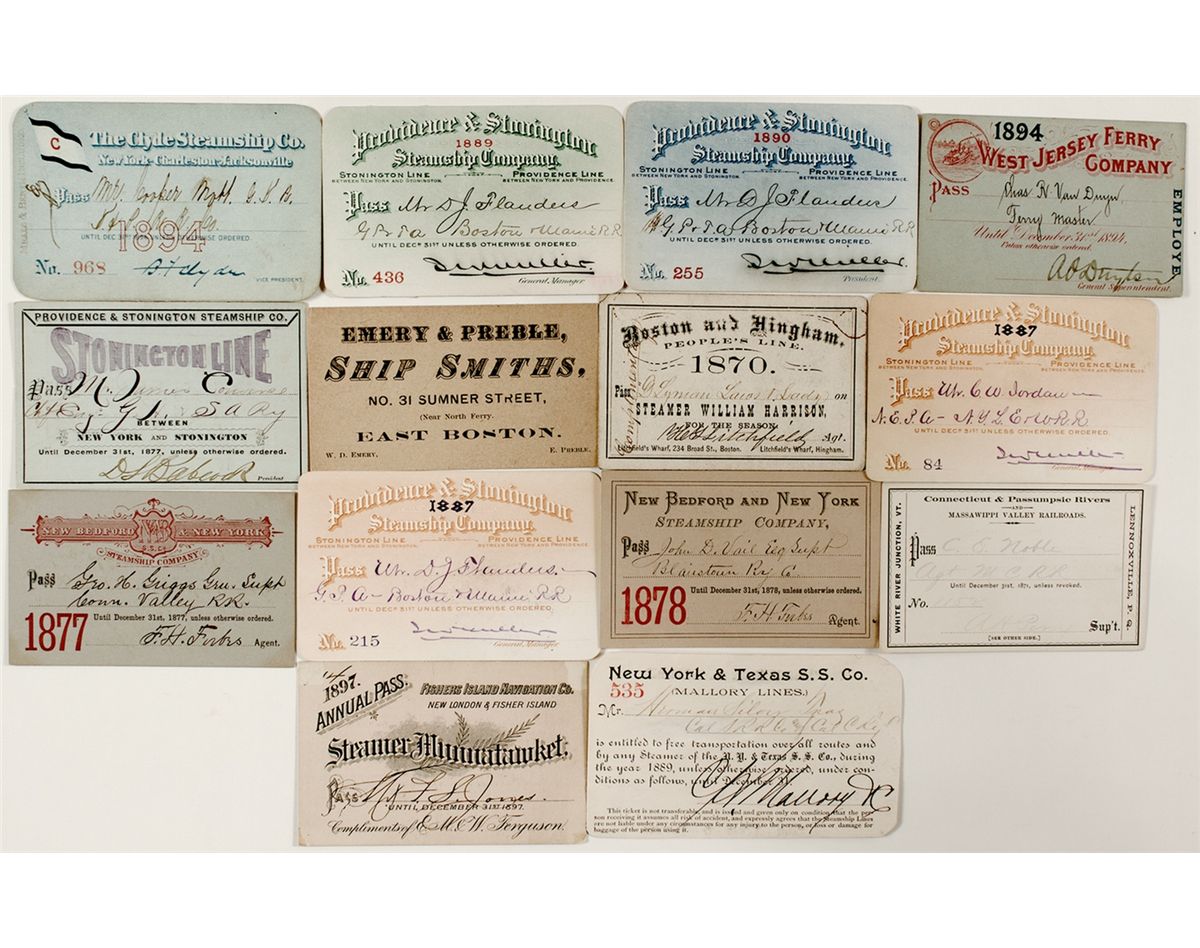 C
The Clyde Steamship Co.
New York-Charleston-Jacksonville
Pass Mr. Cooper Mott. G.S.A.
1894
UNTIL DEC 31ST UNLESS OTHERWISE ORDERED.
No. 968
VICE PRESIDENT.
Providence & Stonington
1889
Steamship Company.
STONINGTON LINE
BETWEEN NEW YORK AND STONINGTON
PROVIDENCE LINE
BETWEEN NEW YORK AND PROVIDENCE
Pass Mr D J Flanders
G P & T a Boston & Maine R R
UNTIL DECR 31ST UNLESS OTHERWISE ORDERED.
No. 436
General Manager
Providence & Stonington
1890
Steamship Company.
STONINGTON LINE
BETWEEN NEW YORK AND STONINGTON
PROVIDENCE LINE
BETWEEN NEW YORK AND PROVIDENCE
Pass Mr D J Flanders
G P & T a Boston & Maine R R
UNTIL DECR 31ST UNLESS OTHERWISE ORDERED.
No. 255
President.
1894
WEST JERSEY FERRY
COMPANY
PASS Chas N Van Duzen
Ferry Master
Until December 31st 1894.
Unless otherwise ordered.
General Superintendent.
EMPLOYE
PROVIDENCE & STONINGTON STEAMSHIP CO.
STONINGTON LINE
Pass M. James Converse
BETWEEN
NEW YORK AND STONINGTON
Until December 31st, 1877, unless otherwise ordered.
D S Babcock President
EMERY & PREBLE,
SHIP SMITHS,
NO. 31 SUMNER STREET,
(Near North Ferry.
EAST BOSTON.
W. D. EMERY. E. PREBLE.
Boston and Hingham.
PEOPLE'S LINE.
1870.
Pass on
STEAMER WILLIAM HARRISON,
FOR THE SEASON.
Litchfield Agt.
Litchfield's Wharf, 234 Broad St., Boston. Litchfield's Wharf, Hingham.
Providence & Stonington
1887
Steamship Company.
STONINGTON LINE
BETWEEN NEW YORK AND STONINGTON
PROVIDENCE LINE
BETWEEN NEW YORK AND PROVIDENCE
Pass Mr. C. W. Jordan
UNTIL DECR 31ST UNLESS OTHERWISE ORDERED.
No. 84
General Manager
NEW BEDFORD & NEW YORK
S.S. Co
STEAMSHIP COMPANY
Pass Geo. H. Griggs Gen. Supt
Conn. Valley RR.
1877
Until December 31st, 1877, unless otherwise ordered.
F. H. Forbes Agent.
Providence & Stonington
1887
Steamship Company.
STONINGTON LINE
BETWEEN NEW YORK AND STONINGTON
PROVIDENCE LINE
BETWEEN NEW YORK AND PROVIDENCE
Pass Mr. D. J. Flanders
G. P. A - Boston & Maine R R
UNTIL DECR 31ST UNLESS OTHERWISE ORDERED.
No. 215
General Manager
NEW BEDFORD AND NEW YORK
STEAMSHIP COMPANY,
Pass John D. Vail Esq Supt
Blairstown Ry Co
1878
Until December 31st, 1878, unless otherwise ordered.
F. H. Forbes
Agent.
Connecticut & Passumpsic Rivers
—AND—
MASSAWIPPI VALLEY RAILROADS.
WHITE RIVER JUNCTION, VT.
LENNOXVILLE, P. Q.
Pass C. S. Noble
Until December 31st, 1871, unless revoked.
No.
Sup't.
[SEE OTHER SIDE.]
1897.
ANNUAL PASS.
FISHERS ISLAND NAVIGATION CO.
NEW LONDON & FISHER ISLAND
Steamer Munnatawket.
PASS Jones
UNTIL DECEMBER 31ST 1897.
Compliments of E. M. & W. Ferguson.
New York & Texas S. S. Co.
535 (MALLORY LINES.)
Mr.
is entitled to free transportation over all routes and
by any Steamer of the N. Y. & Texas S. S. Co., during
the year 1889, unless otherwise ordered, under con-
ditions as follows, until December 31
C H Mallory & Co
This ticket is not transferable, and is issued and given only on condition that the per-
son receiving it assumes all risk of accident, and expressly agrees that the Steamship Lines
are not liable under any circumstances for any injury to the person, or loss or damage for
baggage of the person using it.